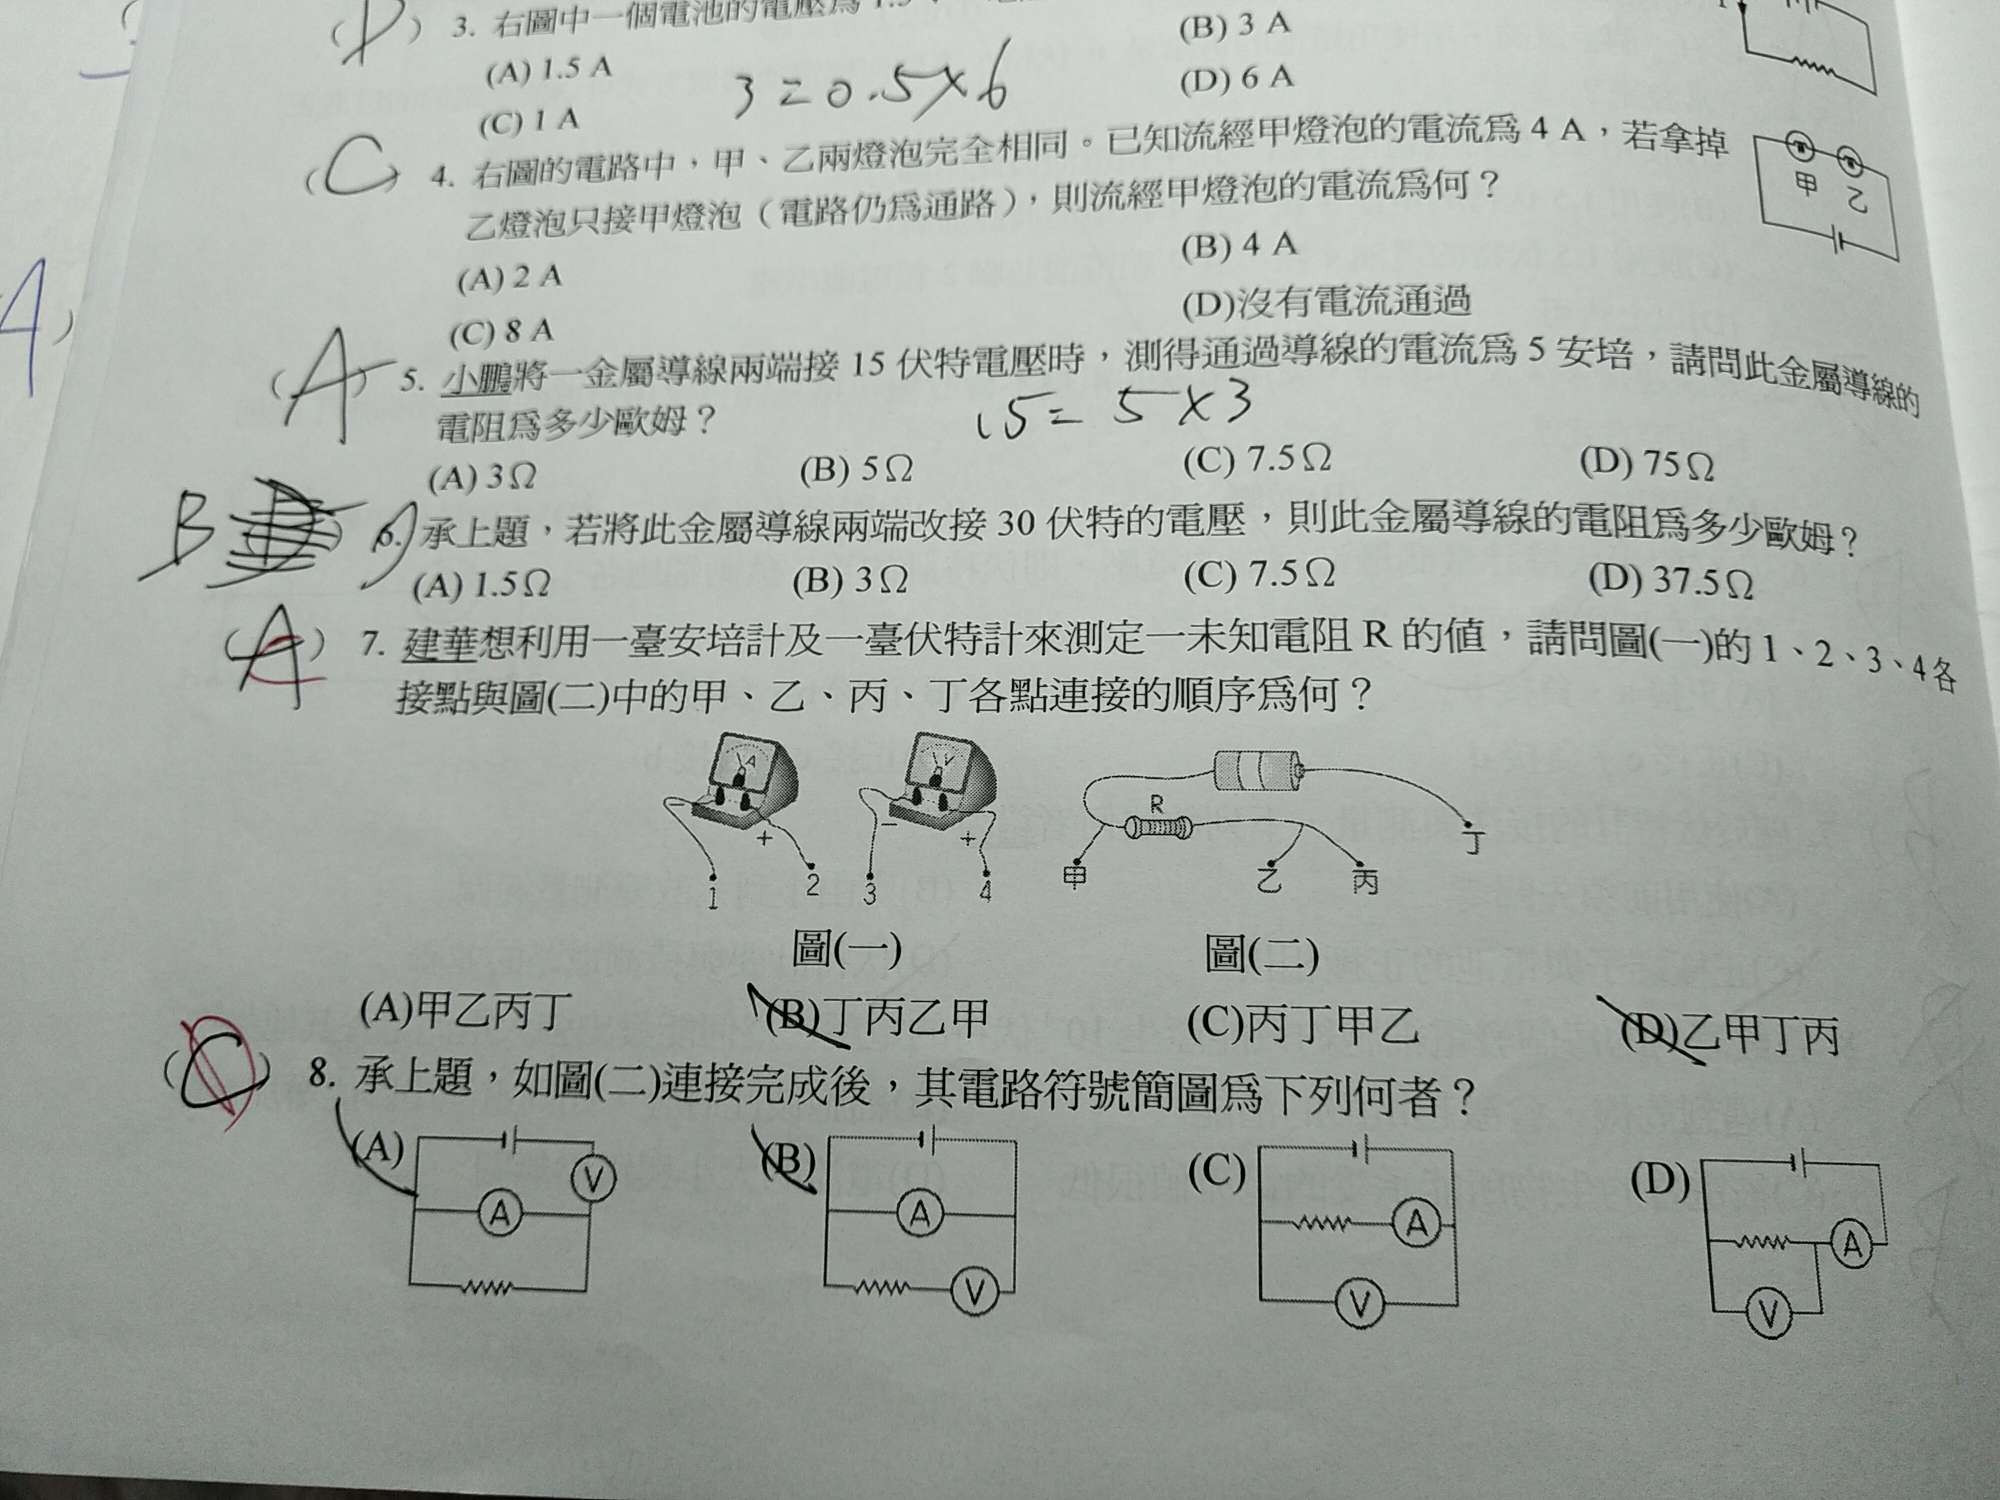 (D) 3. 右圖中一個電池的電壓為 1.5
(A) 1.5 A (B) 3 A
3=0.5×6
(C) 1 A (D) 6 A
(C) 4. 右圖的電路中，甲、乙兩燈泡完全相同。已知流經甲燈泡的電流為 4 A，若拿掉
乙燈泡只接甲燈泡（電路仍為通路），則流經甲燈泡的電流為何？
甲 乙
(A) 2 A (B) 4 A
(C) 8 A (D)沒有電流通過
(A) 5. 小鵬將一金屬導線兩端接 15 伏特電壓時，測得通過導線的電流為 5 安培，請問此金屬導線的
電阻為多少歐姆？
15=5×3
(A) 3Ω (B) 5Ω (C) 7.5Ω (D) 75Ω
B 6. 承上題，若將此金屬導線兩端改接 30 伏特的電壓，則此金屬導線的電阻為多少歐姆？
(A) 1.5Ω (B) 3Ω (C) 7.5Ω (D) 37.5Ω
(A) 7. 建華想利用一臺安培計及一臺伏特計來測定一未知電阻 R 的值，請問圖(一)的 1、2、3、4各
接點與圖(二)中的甲、乙、丙、丁各點連接的順序為何？
A V
R
− + − +
1 2 3 4 甲 乙 丙 丁
圖(一) 圖(二)
(A)甲乙丙丁 (B)丁丙乙甲 (C)丙丁甲乙 (D)乙甲丁丙
(C) 8. 承上題，如圖(二)連接完成後，其電路符號簡圖為下列何者？
(A) (B) (C) (D)
V A
A V
A V
A V
4)